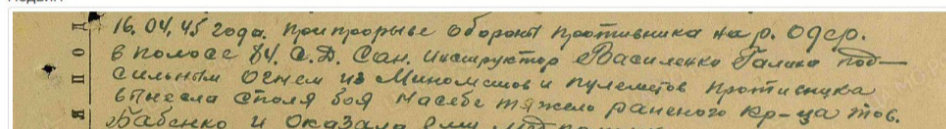 16.04.45 года. при прорыве обороны противника на р. Одер.
в полосе 84. С.Д. Сан. инструктор Василенко Галина под
сильным огнем из Минометов и пулеметов противника
вынесла с поля боя на себе тяжело раненого кр-ца тов.
Бабенко и оказала ему